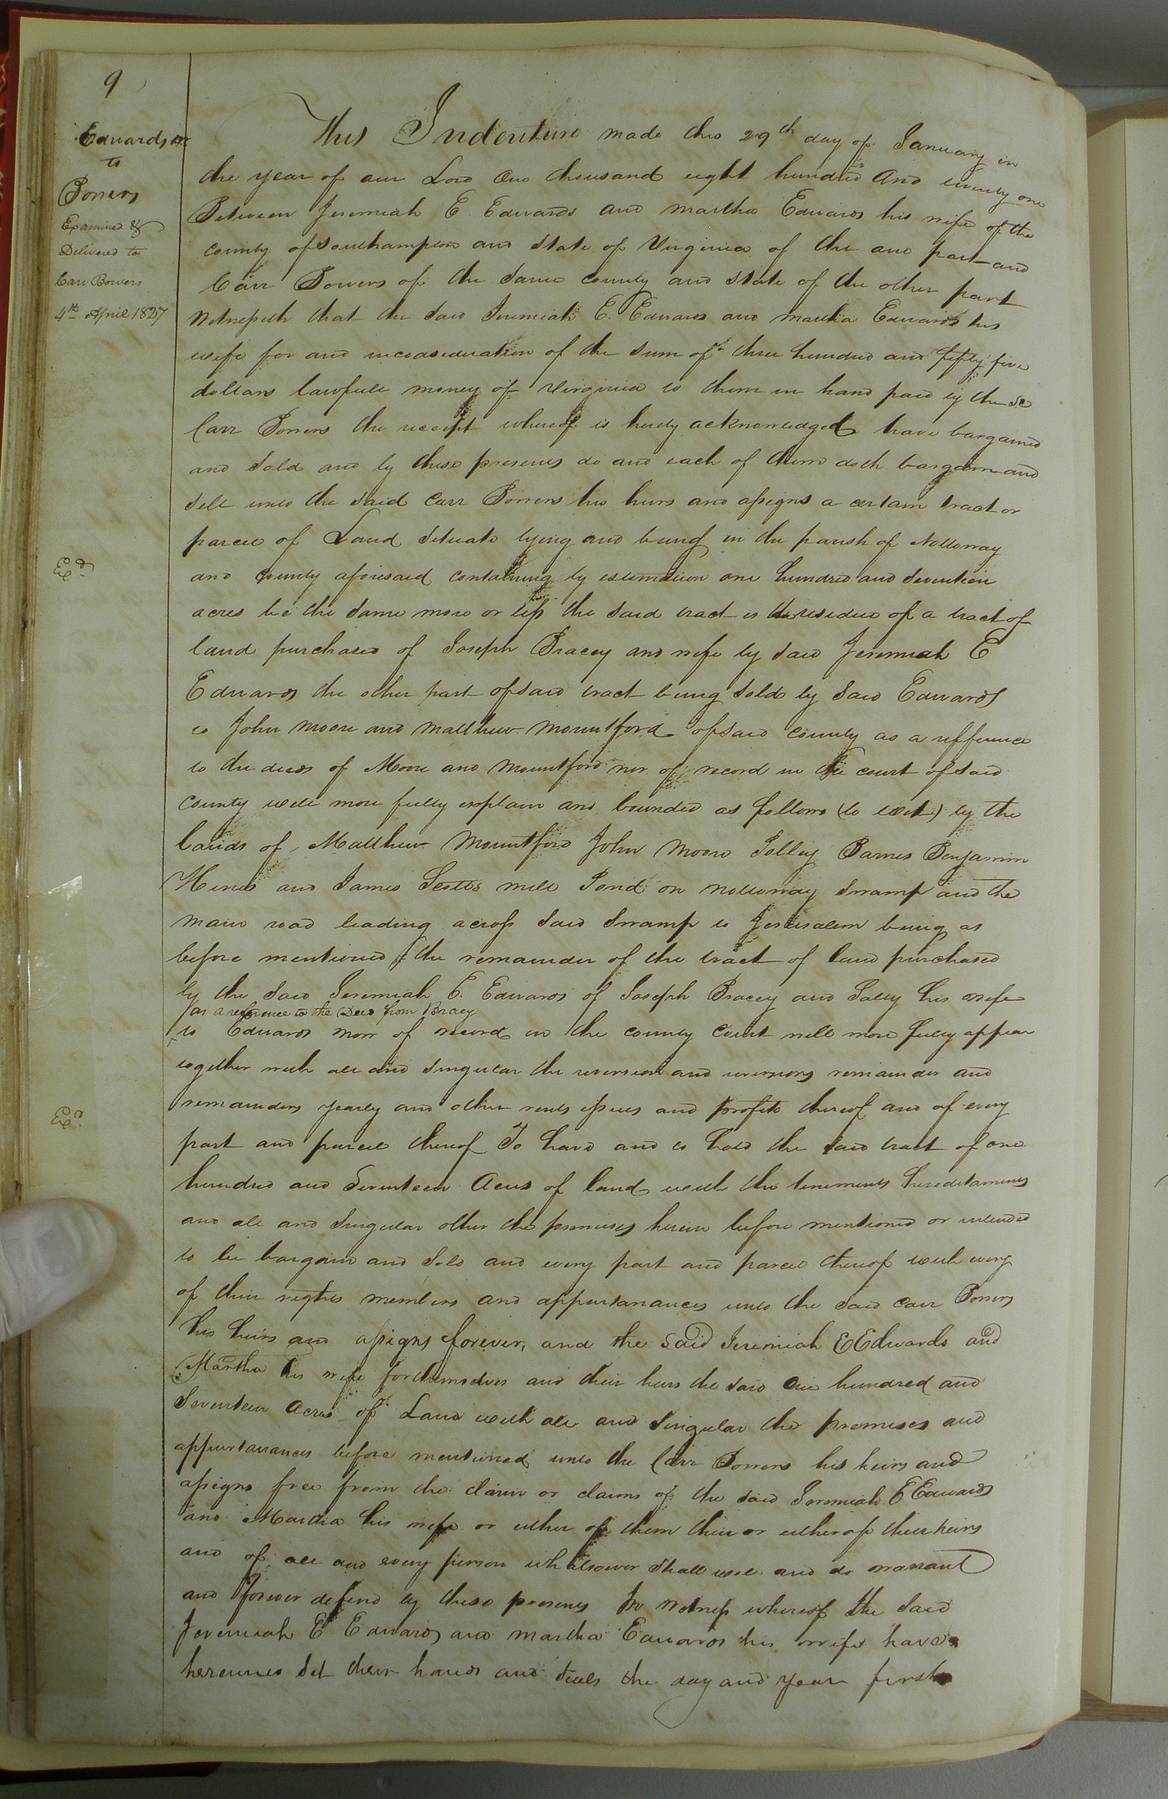 9
Edwards &c
to
Bowers
Examined &
Delivered to
Carr Bowers
4th April 1827
Exd.
Exd.
This Indenture made this 29th day of January in
the year of our Lord One thousand eight hundred and twenty one
Between Jeremiah E Edwards and Martha Edwards his wife of the
County of Southampton and State of Virginia of the one part and
Carr Bowers of the same county and state of the other part
Witnesseth that the said Jeremiah E. Edwards and Martha Edwards his
wife for and inconsideration of the sum of three hundred and fifty five
dollars lawfull money of Virginia to them in hand paid by the sd
Carr Bowers the receipt whereof is hereby acknowledged have bargained
and sold and by these presents do and each of them doth bargain and
sell unto the said Carr Bowers his heirs and assigns a certain tract or
parcel of Land situate lying and being in the parish of Nottoway
and County aforesaid containing by estimation one hundred and seventeen
acres be the same more or less the said tract is the residue of a tract of
land purchased of Joseph Bracey and wife by said Jeremiah E
Edwards the other part of said tract being sold by said Edwards
to John Moore and Matthew Mountford of said county as a refference
to the deeds of Moore and Mountford now of record in the court of said
County will more fully explain and bounded as follows (to wit) by the
lands of Matthew Mountford John Moore Polley Barnes Benjamin
Hines and James Scotts mill Pond on Nottoway Swamp and the
main road leading across said swamp to Jerusalem being as
before mentioned the remainder of the tract of land purchased
by the said Jeremiah E. Edwards of Joseph Bracey and Sally his wife
as a reference to the Deed from Bracy
to Edwards now of record in the county Court will more fully appear
together with all and singular the reversion and reversions remainder and
remainders yearly and other rents issues and profits thereof and of every
part and parcel thereof To have and to hold the said tract of one
hundred and Seventeen Acres of land with the tenements hereditaments
and all and singular other the premises herein before mentioned or intended
to be bargain and sold and every part and parcel thereof with every
of their rights members and appurtanances unto the said Carr Bowers
his heirs and assigns forever, and the said Jeremiah E Edwards and
Martha his wife for themselves and their heirs the said One hundred and
Seventeen Acres of Land with all and singular the premises and
appurtanances before mentioned unto the Carr Bowers his heirs and
assigns free from the claim or claims of the said Jeremiah E Edwards
and Martha his wife or either of them their or either of their heirs
and of all and every person whatsoever shall will and do warrant
and forever defend by these presents In witness whereof the said
Jeremiah E Edwards and Martha Edwards his wife have
hereunto set their hands and seals the day and year first